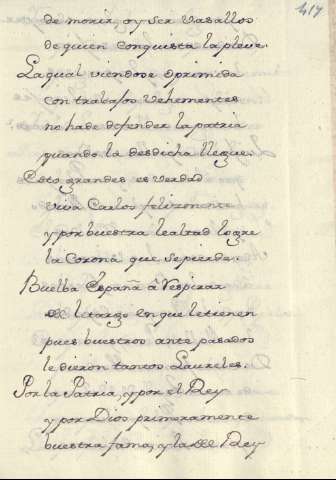 417
de morir, oy ser Vasallos
de quien conquista la pleve.
La qual viendose oprimida
con trabajos vehementes
no hade defender la patria
quando la desdicha llegue.
Esto grandes es verdad
viva Carlos felizmente
y por buestra lealtad logre
la Corona que se pierde.
Buelba España â Respirar
del litargo en que le tienen
pues buestros ante pasados
le dieron tantos Laureles.
Por la Patria, y por el Rey
y por Dios primeramente
buestra fama, y la del Rey